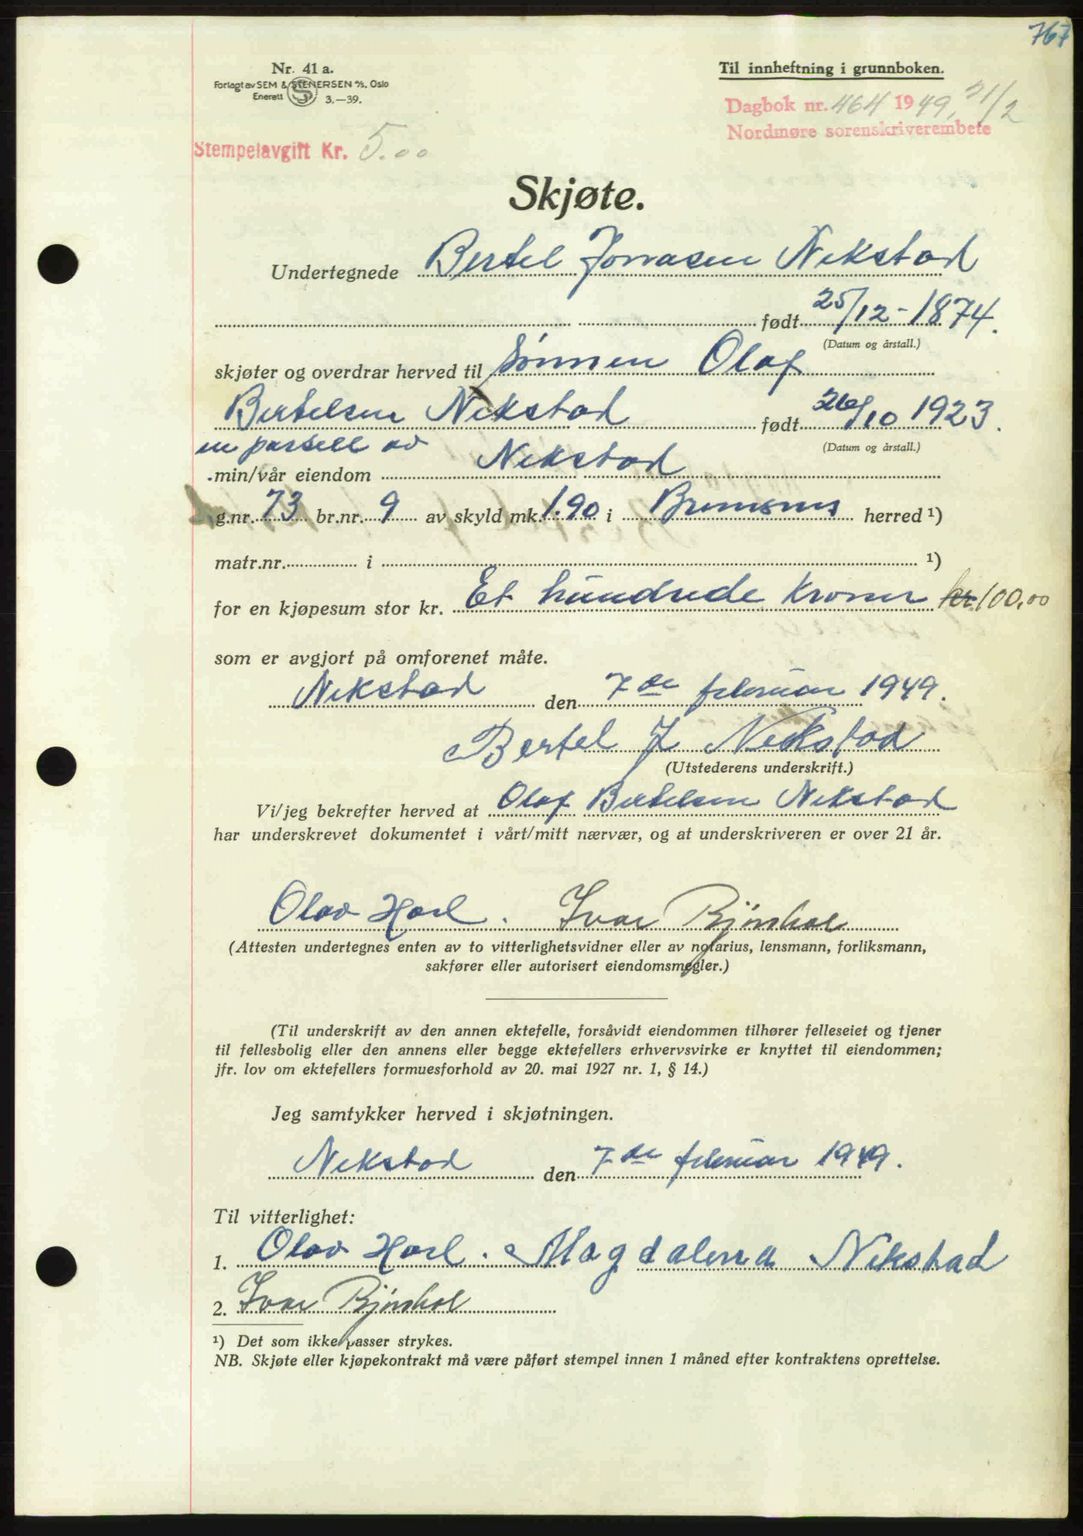 767
Nr. 41 a.
Forlagt av SEM & STENERSEN A/S, Oslo
Enerett 3.—39.
Til innheftning i grunnboken.
Dagbok nr. 464 1949, 21/2
Nordmøre sorenskriverembete
Stempelavgift Kr. 5.00
Skjøte.
Undertegnede Bertel Jonasen Nekstad
født 25/12-1874.
(Datum og årstall.)
skjøter og overdrar herved til Sönnen Olaf
Bertelsen Nekstad født 26/10 1923.
(Datum og årstall.)
en parsell av
min/vår eiendom Nekstad
g.nr. 73 br.nr. 9 av skyld mk. 1.90 i Bremsnes herred ¹)
matr.nr. i ¹)
for en kjøpesum stor kr. Et hundrede kroner kr. 100,00
som er avgjort på omforenet måte.
Nekstad den 7de februar 1949.
Bertel J Nekstad
(Utstederens underskrift.)
Vi/jeg bekrefter herved at Olaf Bertelsen Nekstad
har underskrevet dokumentet i vårt/mitt nærvær, og at underskriveren er over 21 år.
Olav Harl. Ivar Bjönhol
(Attesten undertegnes enten av to vitterlighetsvidner eller av notarius, lensmann, forliksmann,
sakfører eller autorisert eiendomsmegler.)
(Til underskrift av den annen ektefelle, forsåvidt eiendommen tilhører felleseiet og tjener
til fellesbolig eller den annens eller begge ektefellers erhvervsvirke er knyttet til eiendommen;
jfr. lov om ektefellers formuesforhold av 20. mai 1927 nr. 1, § 14.)
Jeg samtykker herved i skjøtningen.
Nekstad den 7de februar 1949.
Til vitterlighet:
1. Olav Harl. Magdalena Nekstad
2. Ivar Bjönhol
¹) Det som ikke passer strykes.
NB. Skjøte eller kjøpekontrakt må være påført stempel innen 1 måned efter kontraktens oprettelse.